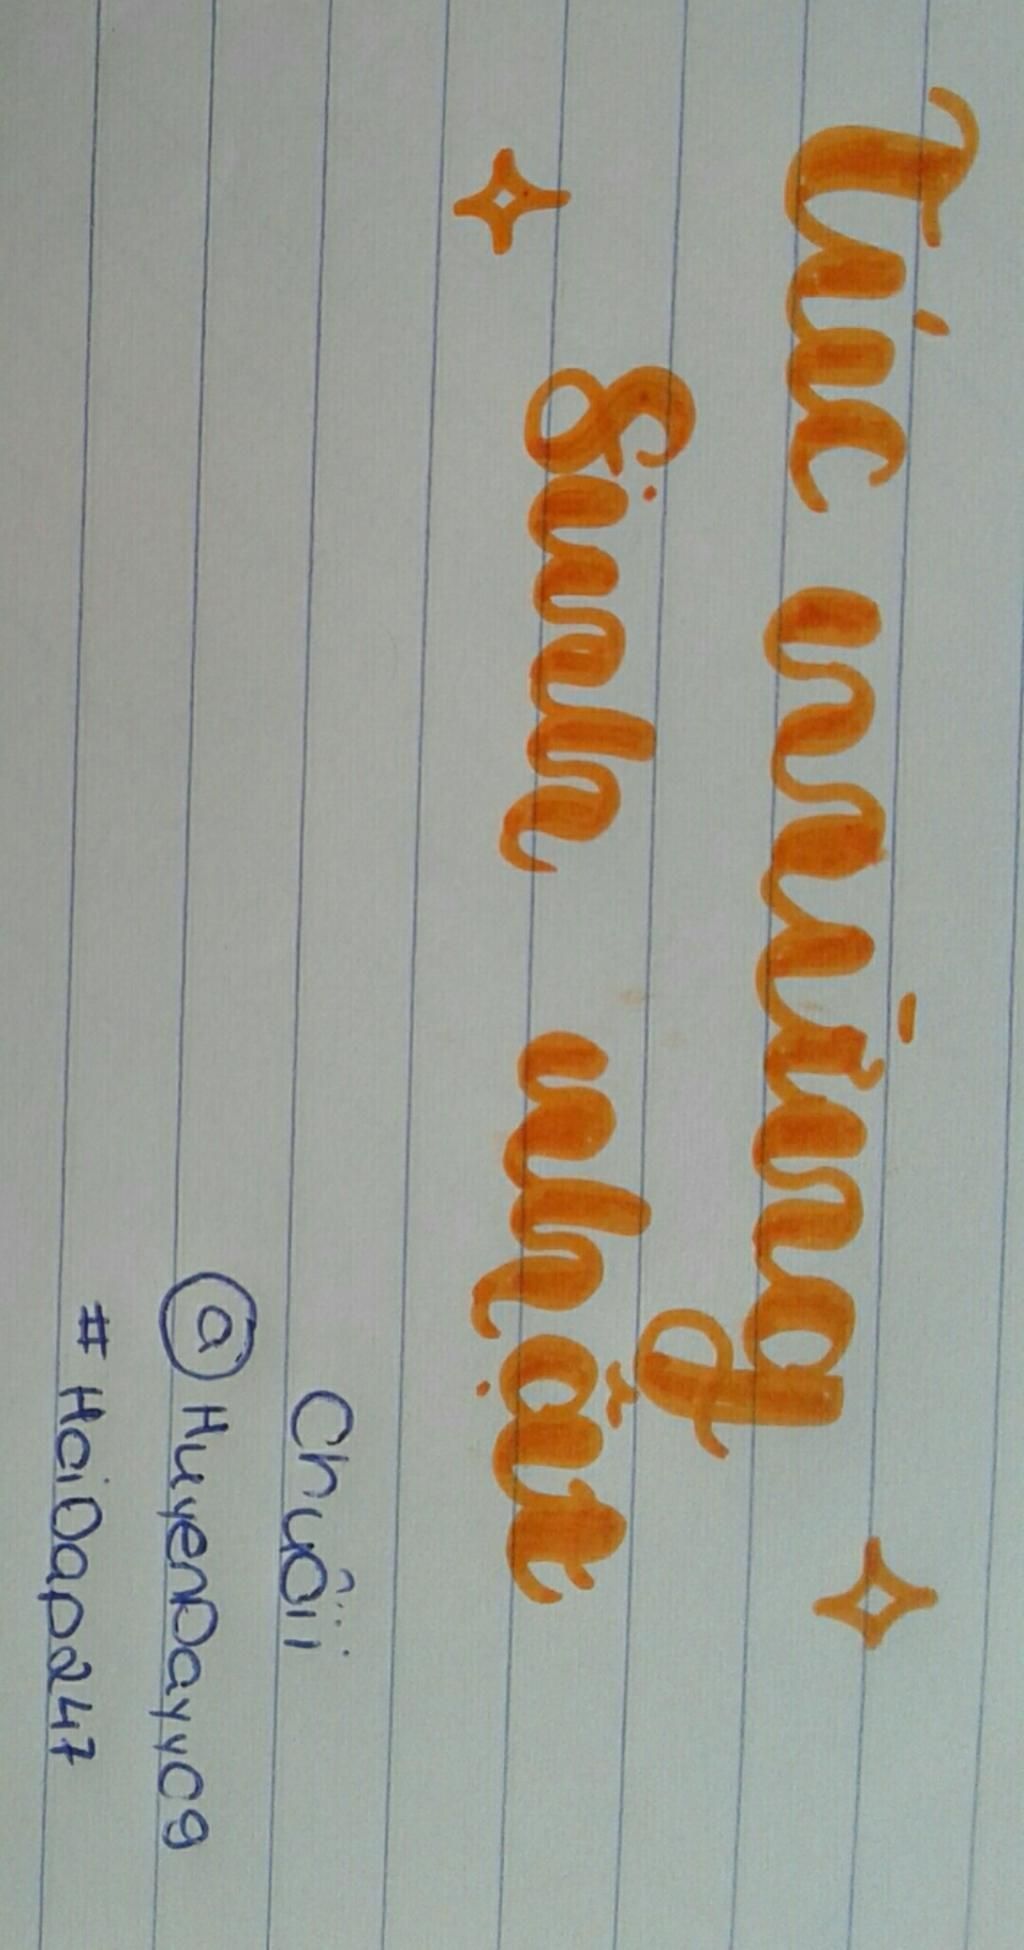 Tiúc mừng
Sinh nhật
Chuôiii
@HuyenDayyy09
#HoiDap247